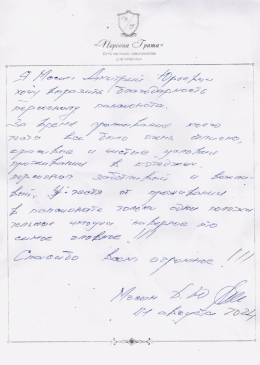 «Першая Грата»
Я Мосин Дмитрий Юрьевич
хочу выразить благодарность
персоналу пансионата.
За время проживания моего
папы все было очень отлично,
красивые и чистые условия
проживания в коттедже.
персонал заботливый и вежли-
вый. У гостя от проживания
в пансионате только одни положи
тельные эмоции наверное это
самое главное!!!
Спасибо вам огромное!!!
Мосин Д.Ю
01 августа 2024